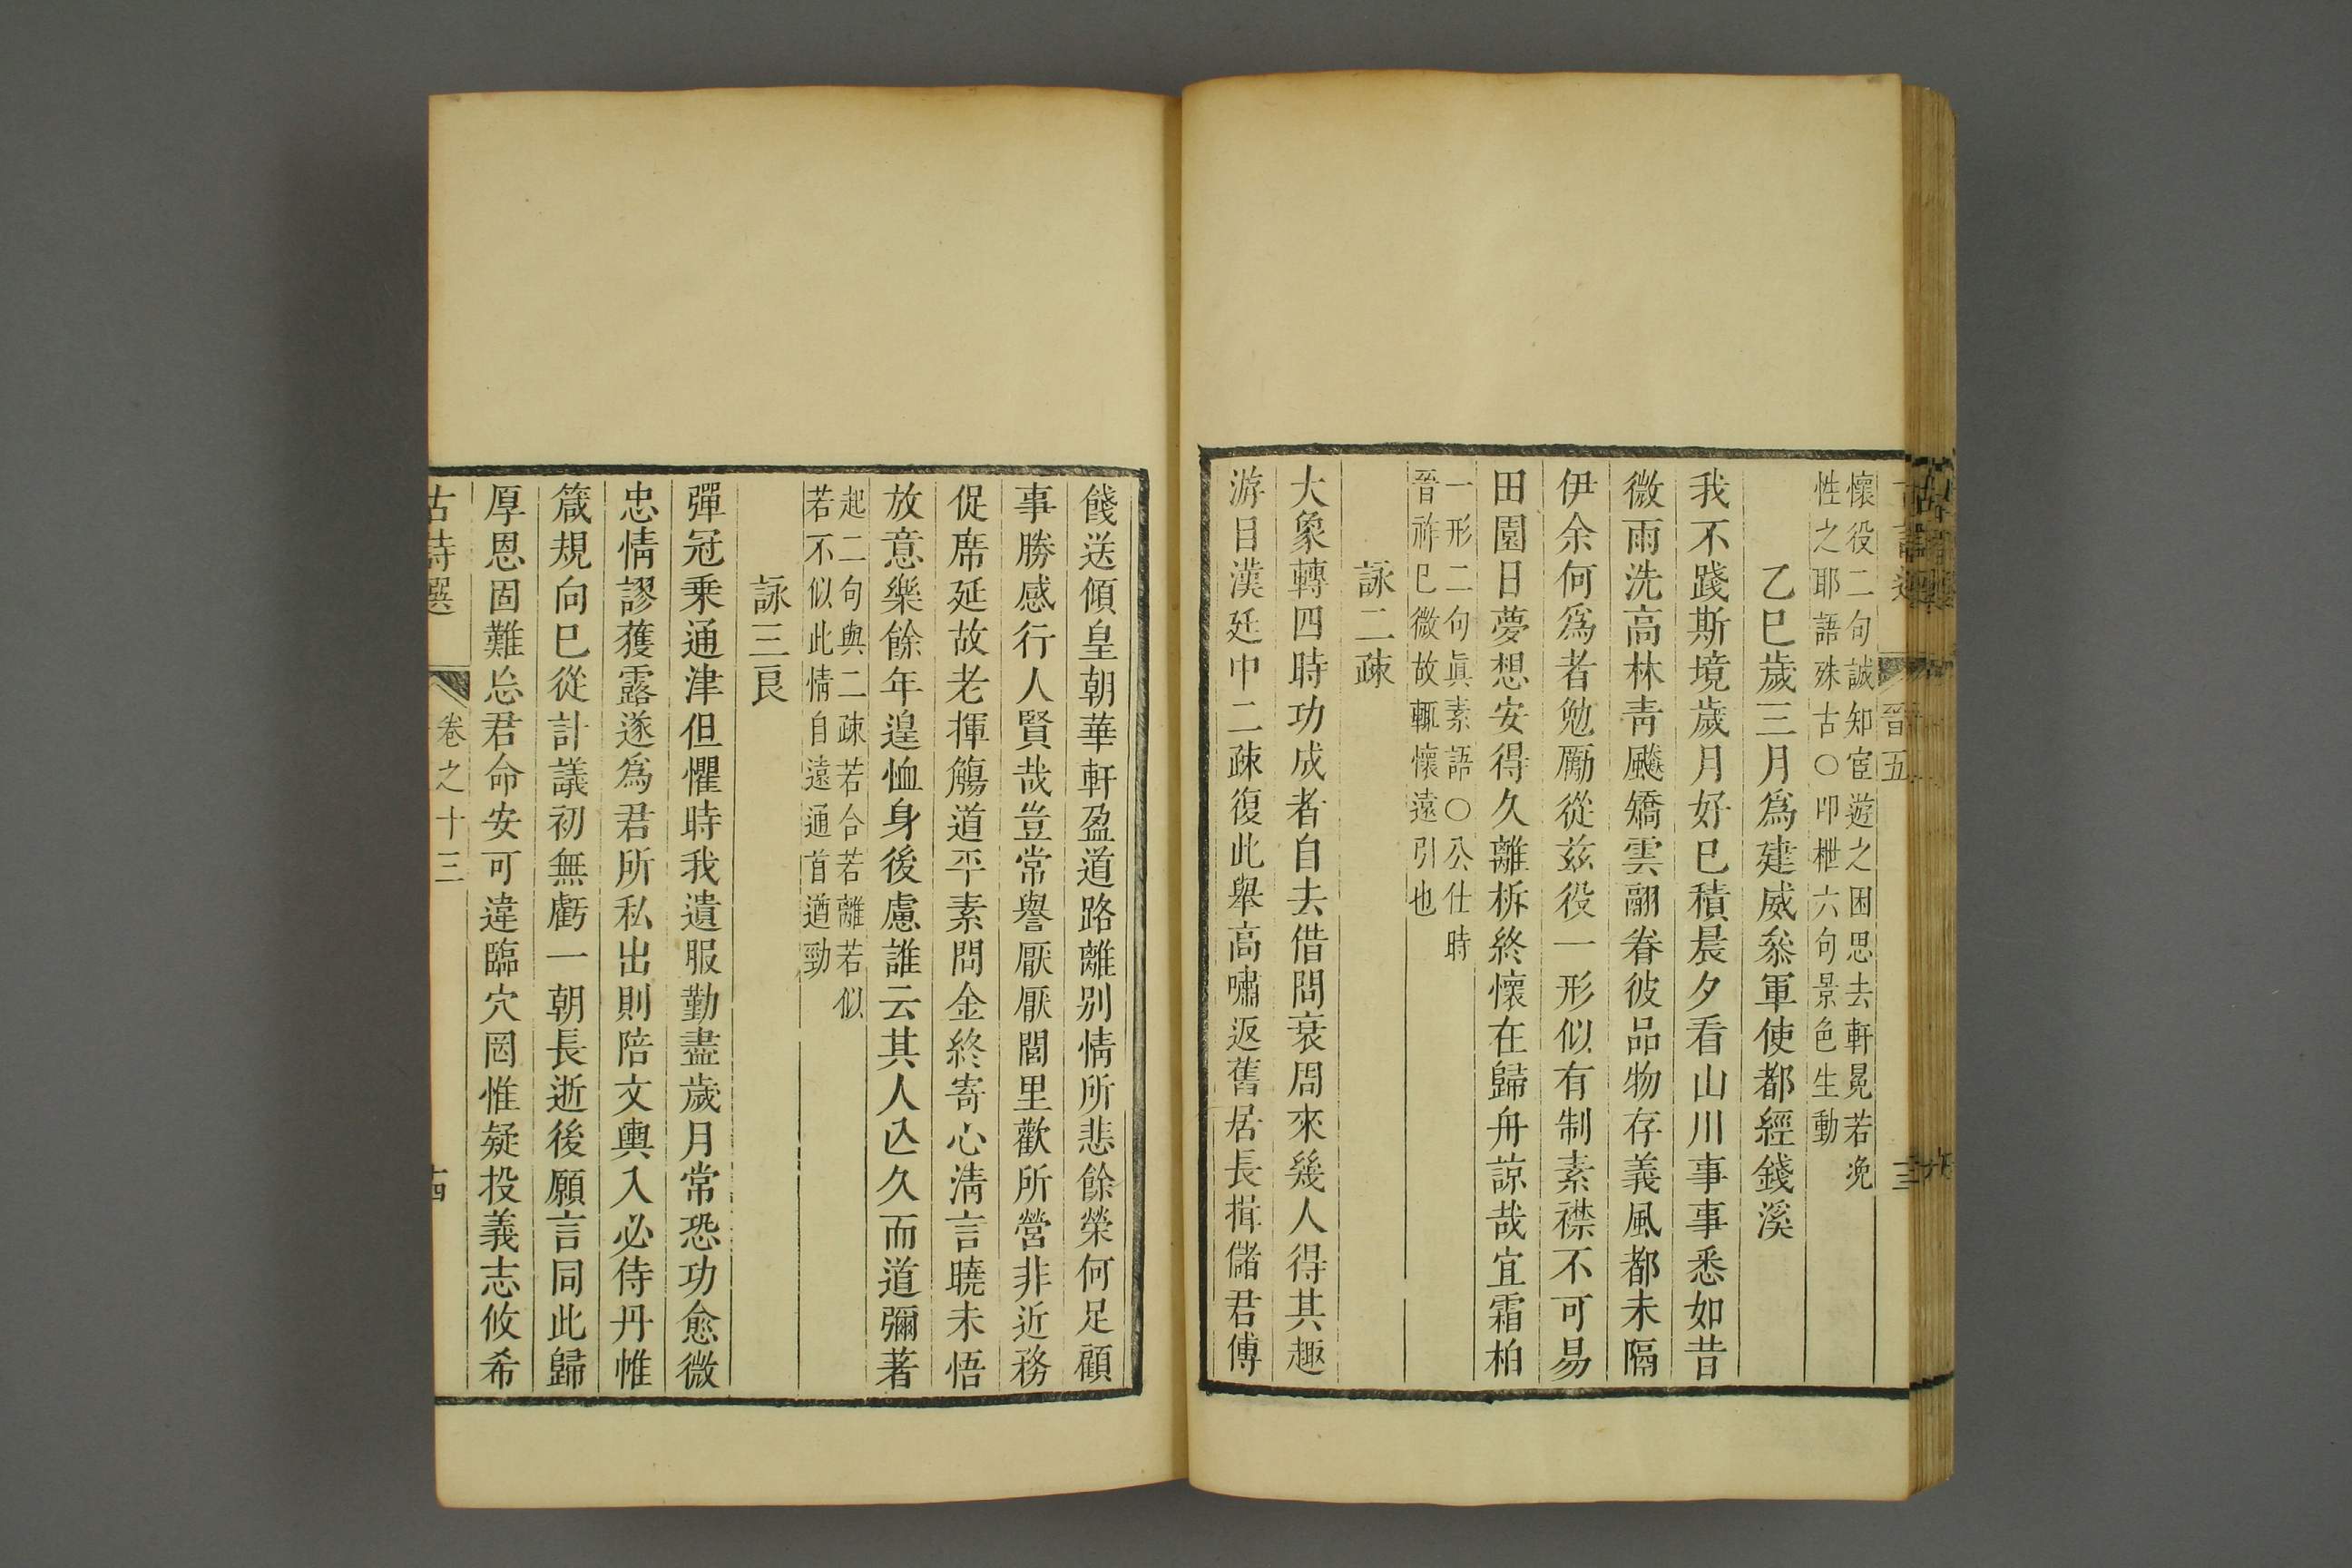 懷役二句誠知宦遊之困思去軒冕若浼
性之耶語殊古○叩枻六句景色生動
乙巳歲三月爲建威叅軍使都經錢溪
我不踐斯境歲月好巳積晨夕看山川事事悉如昔
微雨洗高林靑飈矯雲翮眷彼品物存義風都未隔
伊余何爲者勉厲從茲役一形似有制素襟不可易
田園日夢想安得久離柝終懷在歸舟諒哉宜霜柏
一形二句眞素語○公仕時
晉祚巳微故輒懷遠引也
詠二疎
大象轉四時功成者自去借問衰周來幾人得其趣
游目漢廷中二疎復此舉高嘯返舊居長揖儲君傅
餞送傾皇朝華軒盈道路離别情所悲餘榮何足顧
事勝感行人賢哉豈常譽厭厭閭里歡所營非近務
促席延故老揮觴道平素問金終寄心淸言曉未悟
放意樂餘年遑恤身後慮誰云其人亾久而道彌著
起二句與二疎若合若離若似
若不似此情自遠通首遒勁
詠三良
彈冠乗通津但懼時我遺服勤盡歲月常恐功愈微
忠情謬獲露遂爲君所私出則陪文輿入必侍丹帷
箴規向巳從計議初無虧一朝長逝後願言同此歸
厚恩固難忘君命安可違臨穴罔惟疑投義志攸希
古詩選 卷之十三 古四